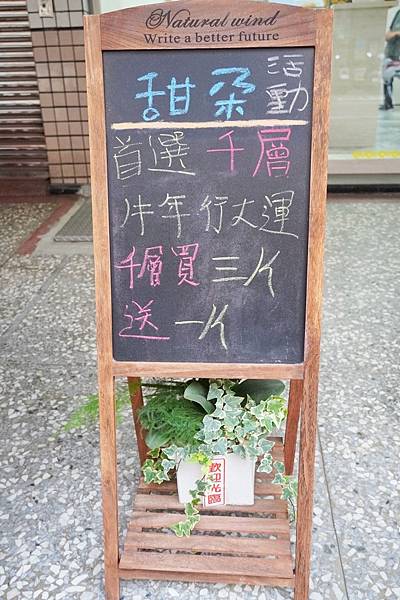 Natural wind
Write a better future
甜朵 活動
首選 千層
牛年 行大運
千層買三片
送一片
歡迎光臨